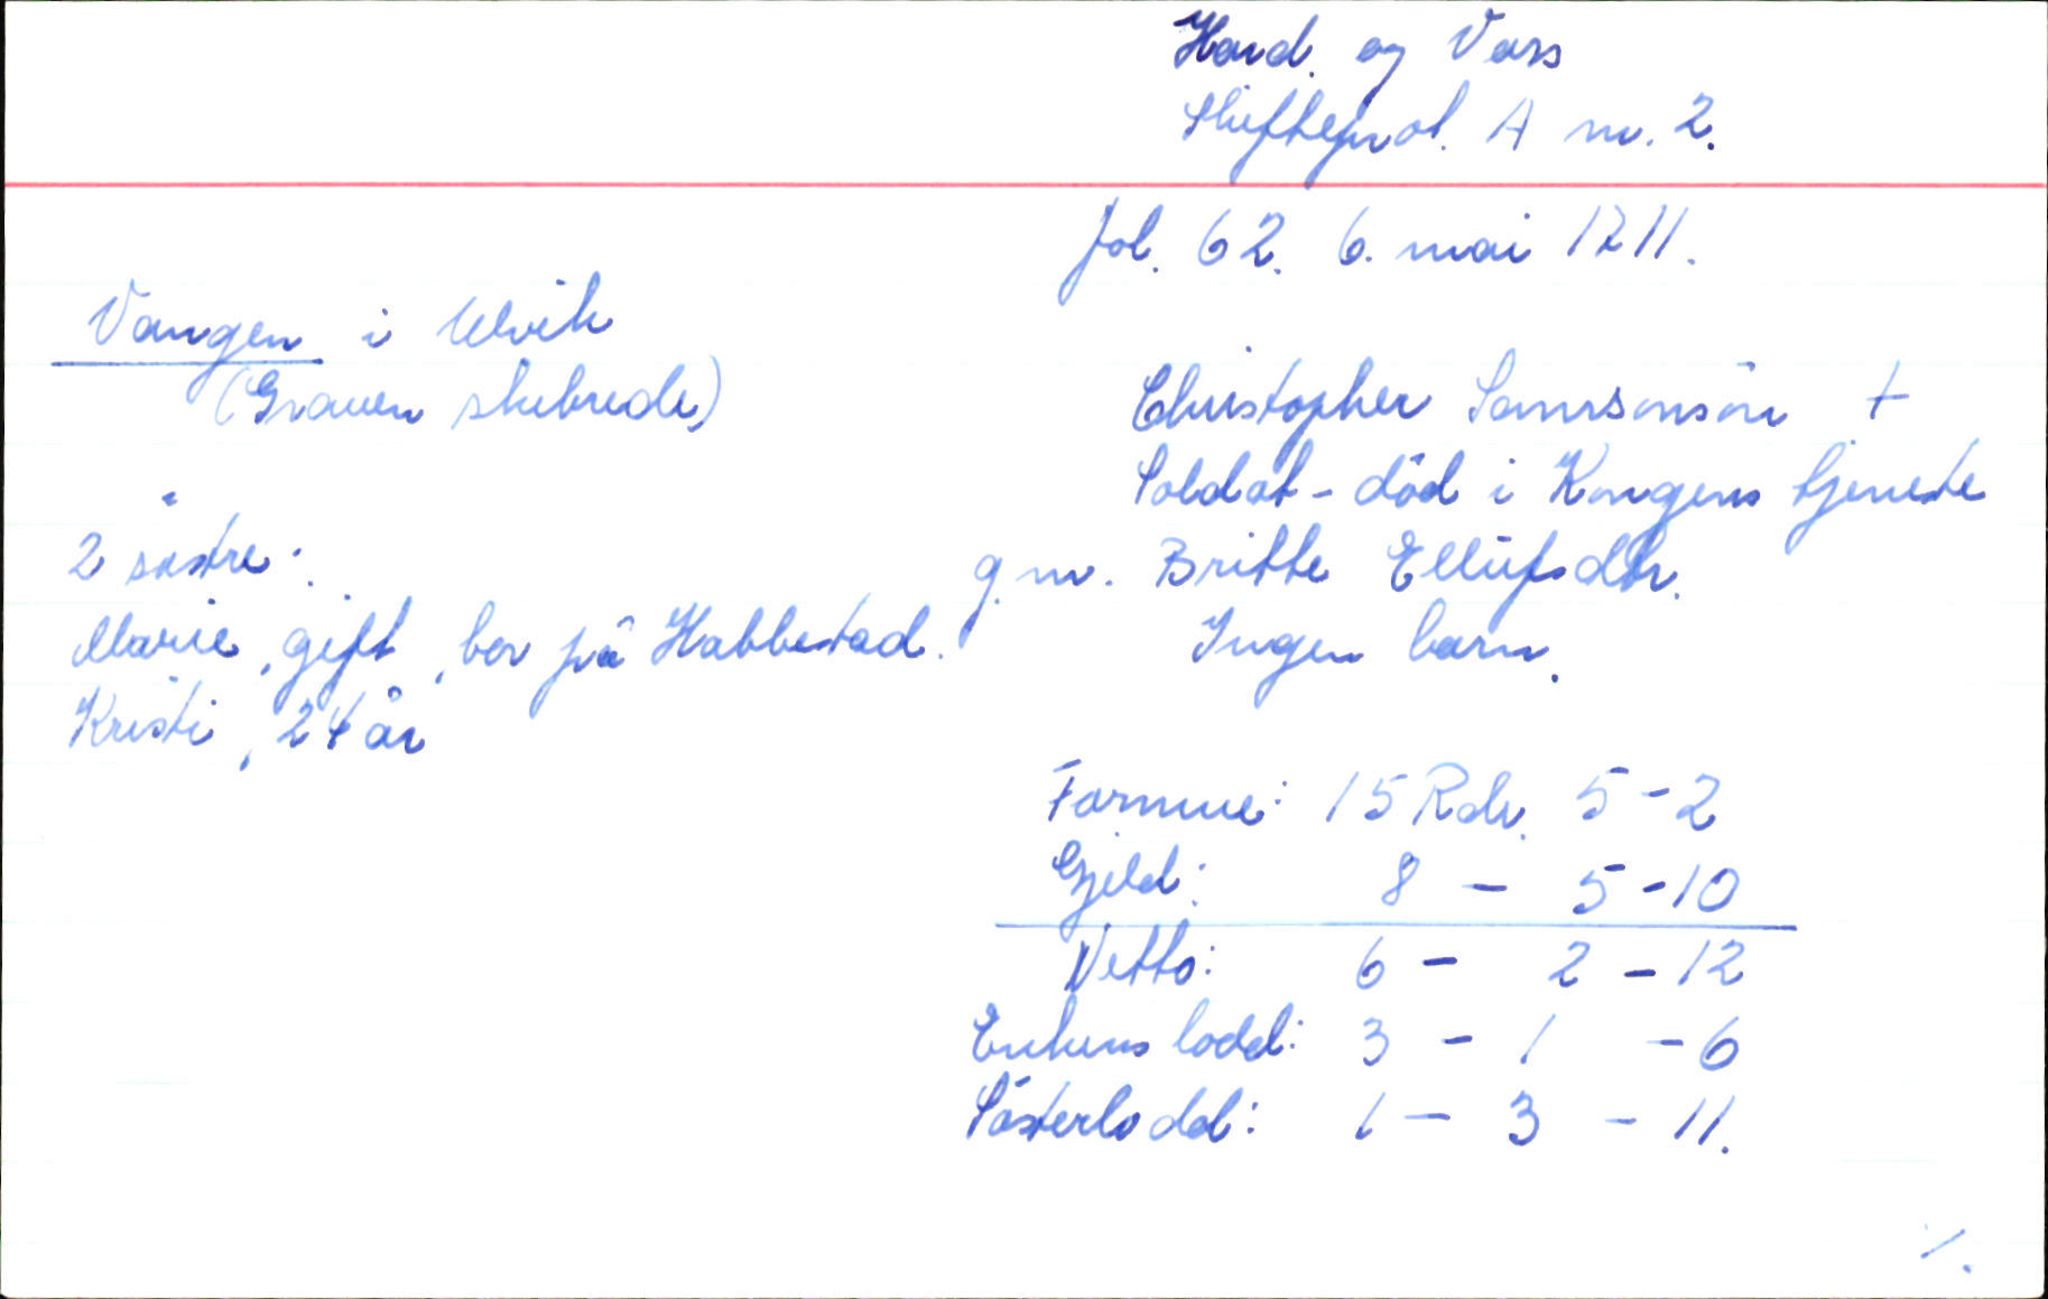 Hard. og Voss
Skifteprot. A nr. 2.
fol. 62. 6. mai 1711.
Vangen i Ulvik
(Graven skibrede)
Christopher Samsonsön +
Soldat - död i Kongens tjeneste
g.m. Britte Ellufsdtr.
Ingen barn.
2 söstre:
Marie, gift, bor på Habbestad.
Kristi, 24 år
Formue: 15 Rdr. 5 - 2
Gjeld: 8 - 5 - 10
Netto: 6 - 2 - 12
Enkens lodd: 3 - 1 - 6
Sösterlodd: 1 - 3 - 11.
/.